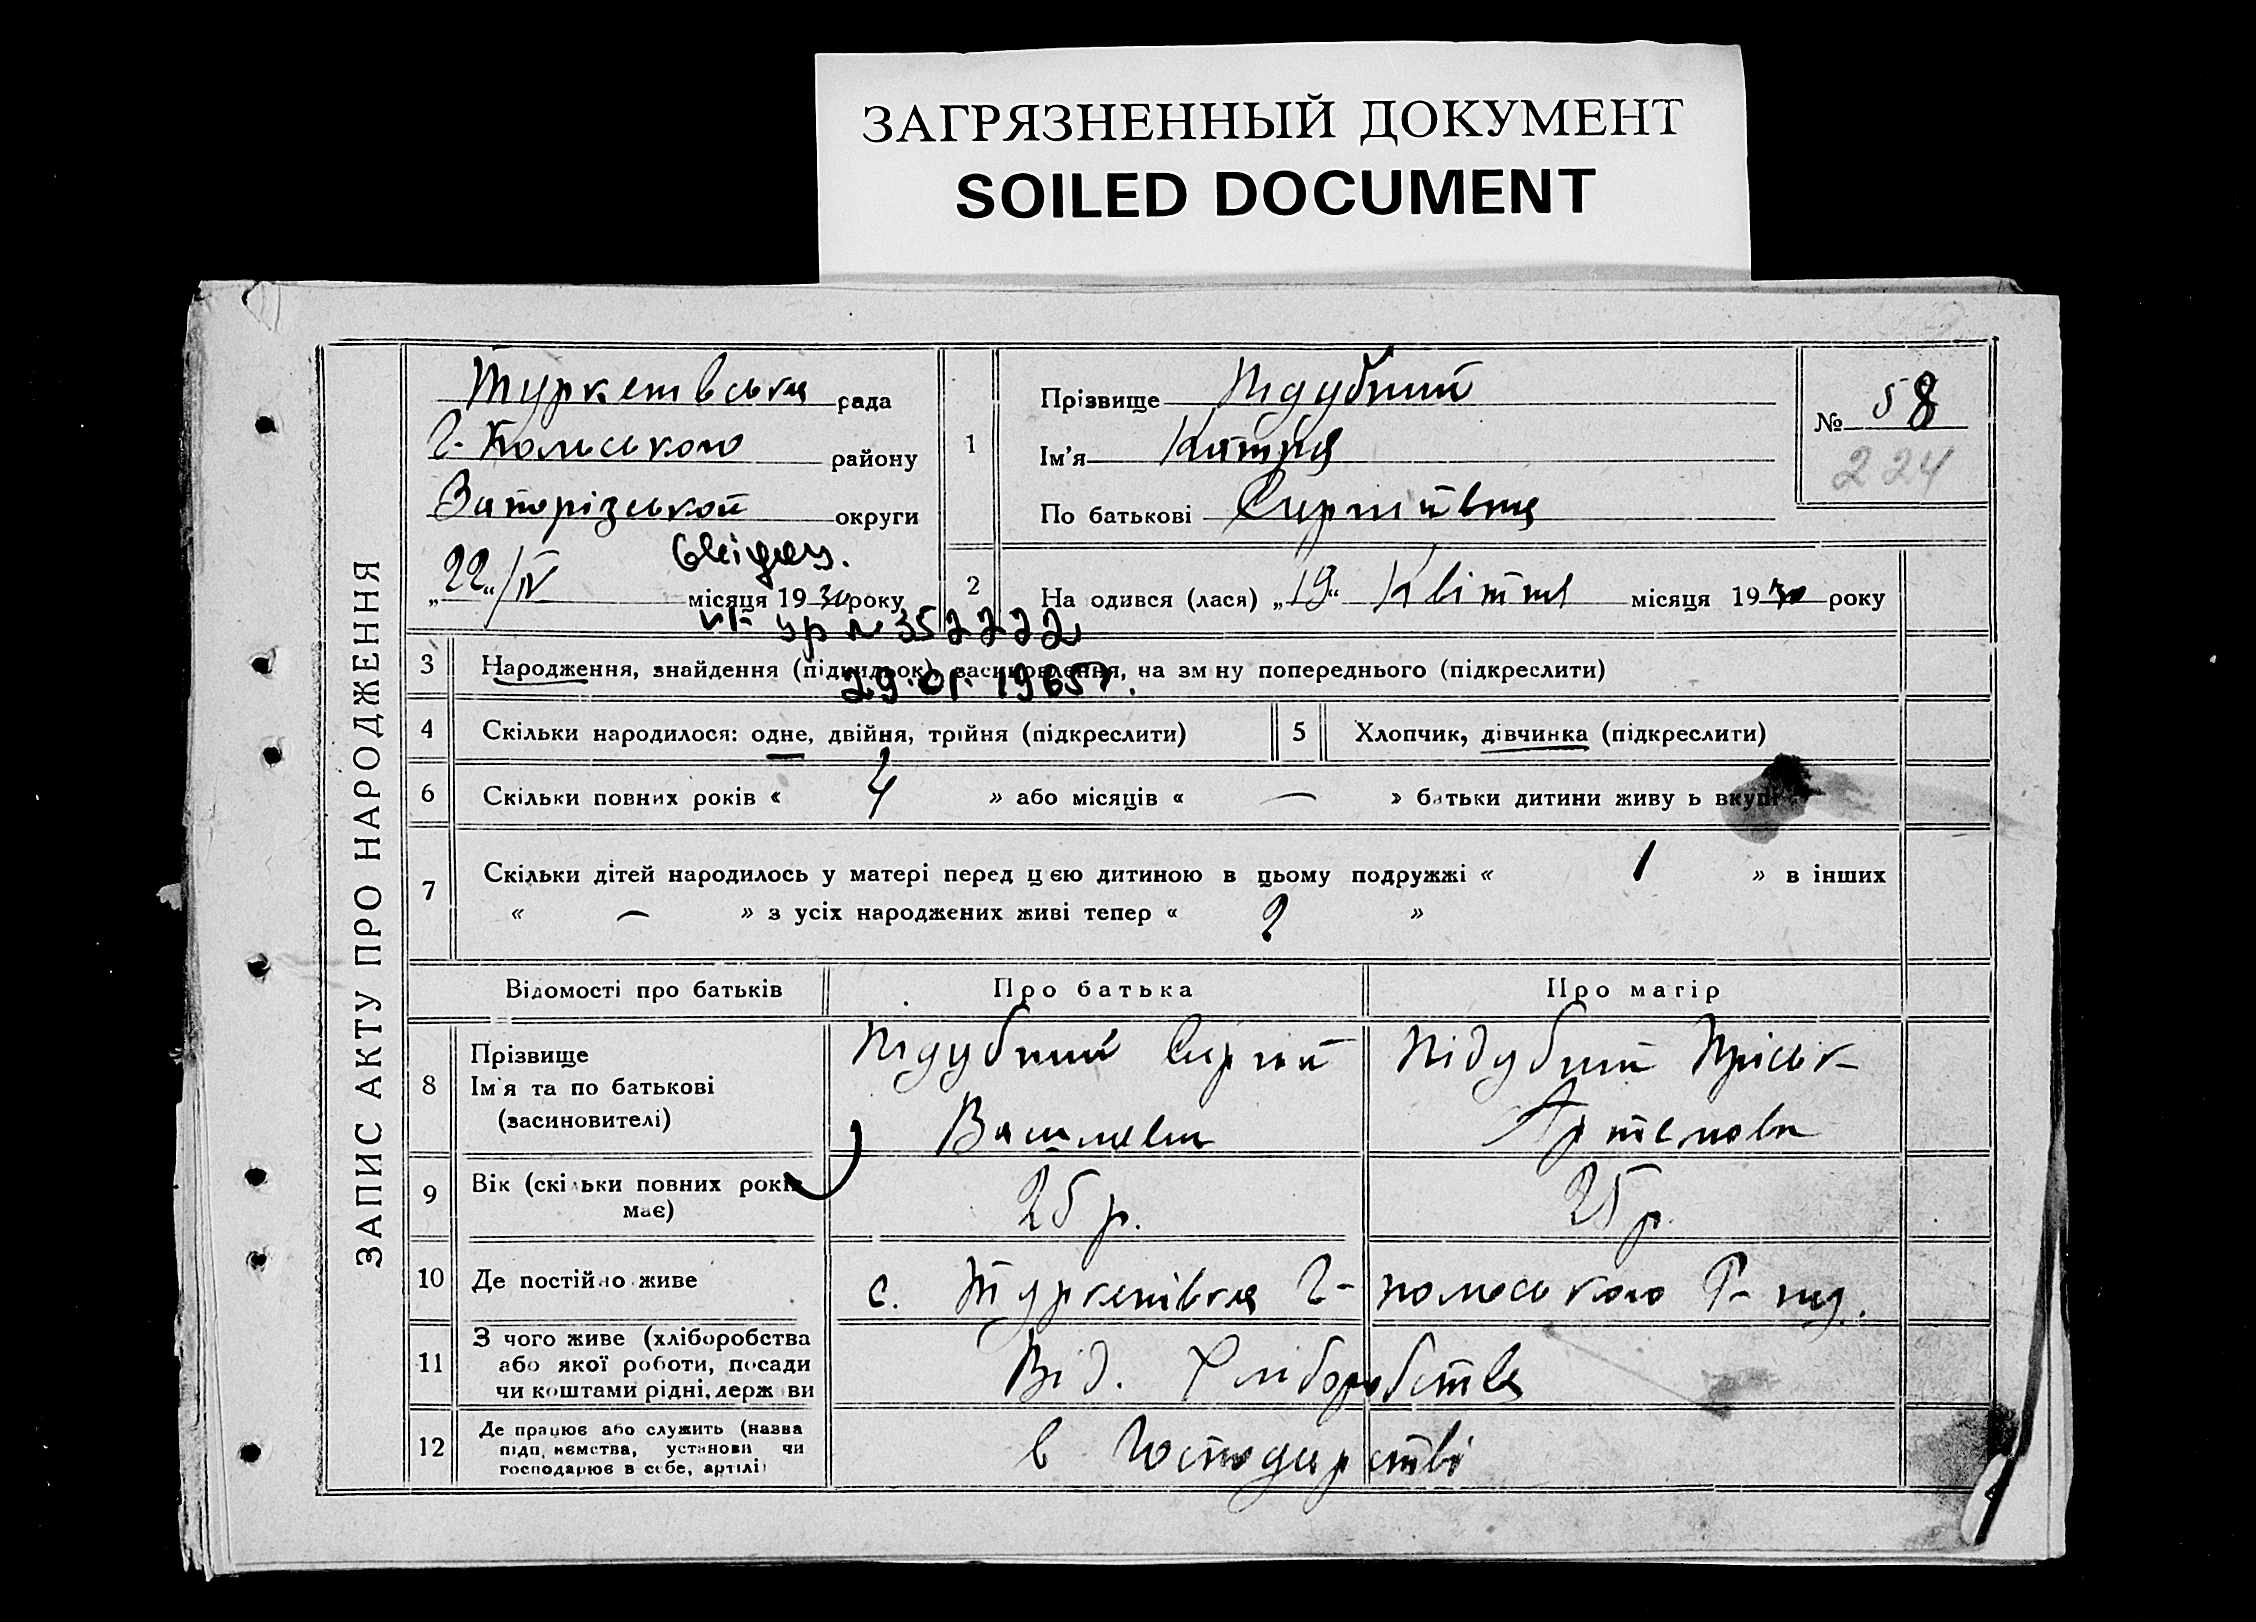 ЗАГРЯЗНЕННЫЙ ДОКУМЕНТ
SOILED DOCUMENT
ЗАПИС АКТУ ПРО НАРОДЖЕННЯ
Туркенівська рада
Г-Польського району
Запорізькой округи
"22"/IV місяця 1930 року
Свідоц.
УР № 352222
29.01.1965г.
1
Прізвище Підубний
Ім'я Катря
По батькові Сиргіївна
№ 58
224
2
На одився (лася) "19" Квітня місяця 1930 року
3 Народження, знайдення (підкидьок), засиновлення, на зм ну попереднього (підкреслити)
4 Скільки народилося: одне, двійня, трійня (підкреслити) 5 Хлопчик, дівчинка (підкреслити)
6 Скільки повних років « 4 » або місяців « — » батьки дитини живу ь вкупі
7 Скільки дітей народилось у матері перед цією дитиною в цьому подружжі « 1 » в інших
« — » з усіх народжених живі тепер « 2 »
Відомості про батьків Про батька Про матір
8 Прізвище
Ім'я та по батькові
(засиновителі)
Підубний Сиргій
Василевич
Підубний Пріськ-
Артемовн
9 Вік (скільки повних років
має)
25 р. 25 р.
10 Де постійно живе с. Туркенівка Г-Польського Р-ну.
11 З чого живе (хліборобства
або якої роботи, посади
чи коштами рідні, держ ви
Від. Хліборобства
12 Де працює або служить (назва
підп иємства, установи чи
господарює в себе, артілі)
в Господарстві